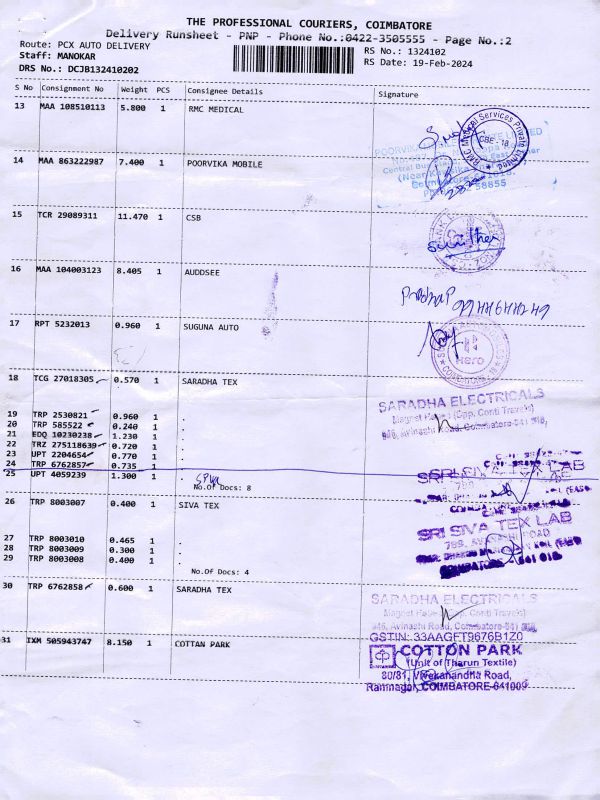 THE PROFESSIONAL COURIERS, COIMBATORE
Delivery Runsheet - PNP - Phone No.:0422-3505555 - Page No.:2
Route: PCX AUTO DELIVERY
RS No.: 1324102
Staff: MANOKAR
RS Date: 19-Feb-2024
DRS No.: DCJB132410202
S No Consignment No Weight PCS Consignee Details Signature
13 MAA 108510113 5.800 1 RMC MEDICAL
14 MAA 863222987 7.400 1 POORVIKA MOBILE
15 TCR 29089311 11.470 1 CSB
16 MAA 104003123 8.405 1 AUDDSEE
17 RPT 5232013 0.960 1 SUGUNA AUTO
Hero
18 TCG 27018305 0.570 1 SARADHA TEX
SARADHA ELECTRICALS
(Opp. Conti Travels)
Avinashi Road, Coimbatore-641 018,
19 TRP 2530821 0.960 1 .
20 TRP 585522 0.240 1 .
21 EDQ 10230238 1.230 1 .
22 TRZ 275118639 0.720 1 .
23 UPT 2204654 0.770 1 .
24 TRP 6762857 0.735 1 .
25 UPT 4059239 1.300 1 .
No.Of Docs: 8
26 TRP 8003007 0.400 1 SIVA TEX
SRI SIVA TEX LAB
27 TRP 8003010 0.465 1 .
28 TRP 8003009 0.300 1 .
29 TRP 8003008 0.400 1 .
No.Of Docs: 4
COIMBATORE - 641 018
30 TRP 6762858 0.600 1 SARADHA TEX
SARADHA ELECTRICALS
(Opp. Conti Travels)
946, Avinashi Road, Coimbatore-641 018,
GSTIN: 33AAGFT9676B1Z0
31 IXM 505943747 8.150 1 COTTAN PARK
COTTON PARK
(Unit of Tharun Textile)
80/81, Vivekanandha Road,
Ramnagar, COIMBATORE-641009